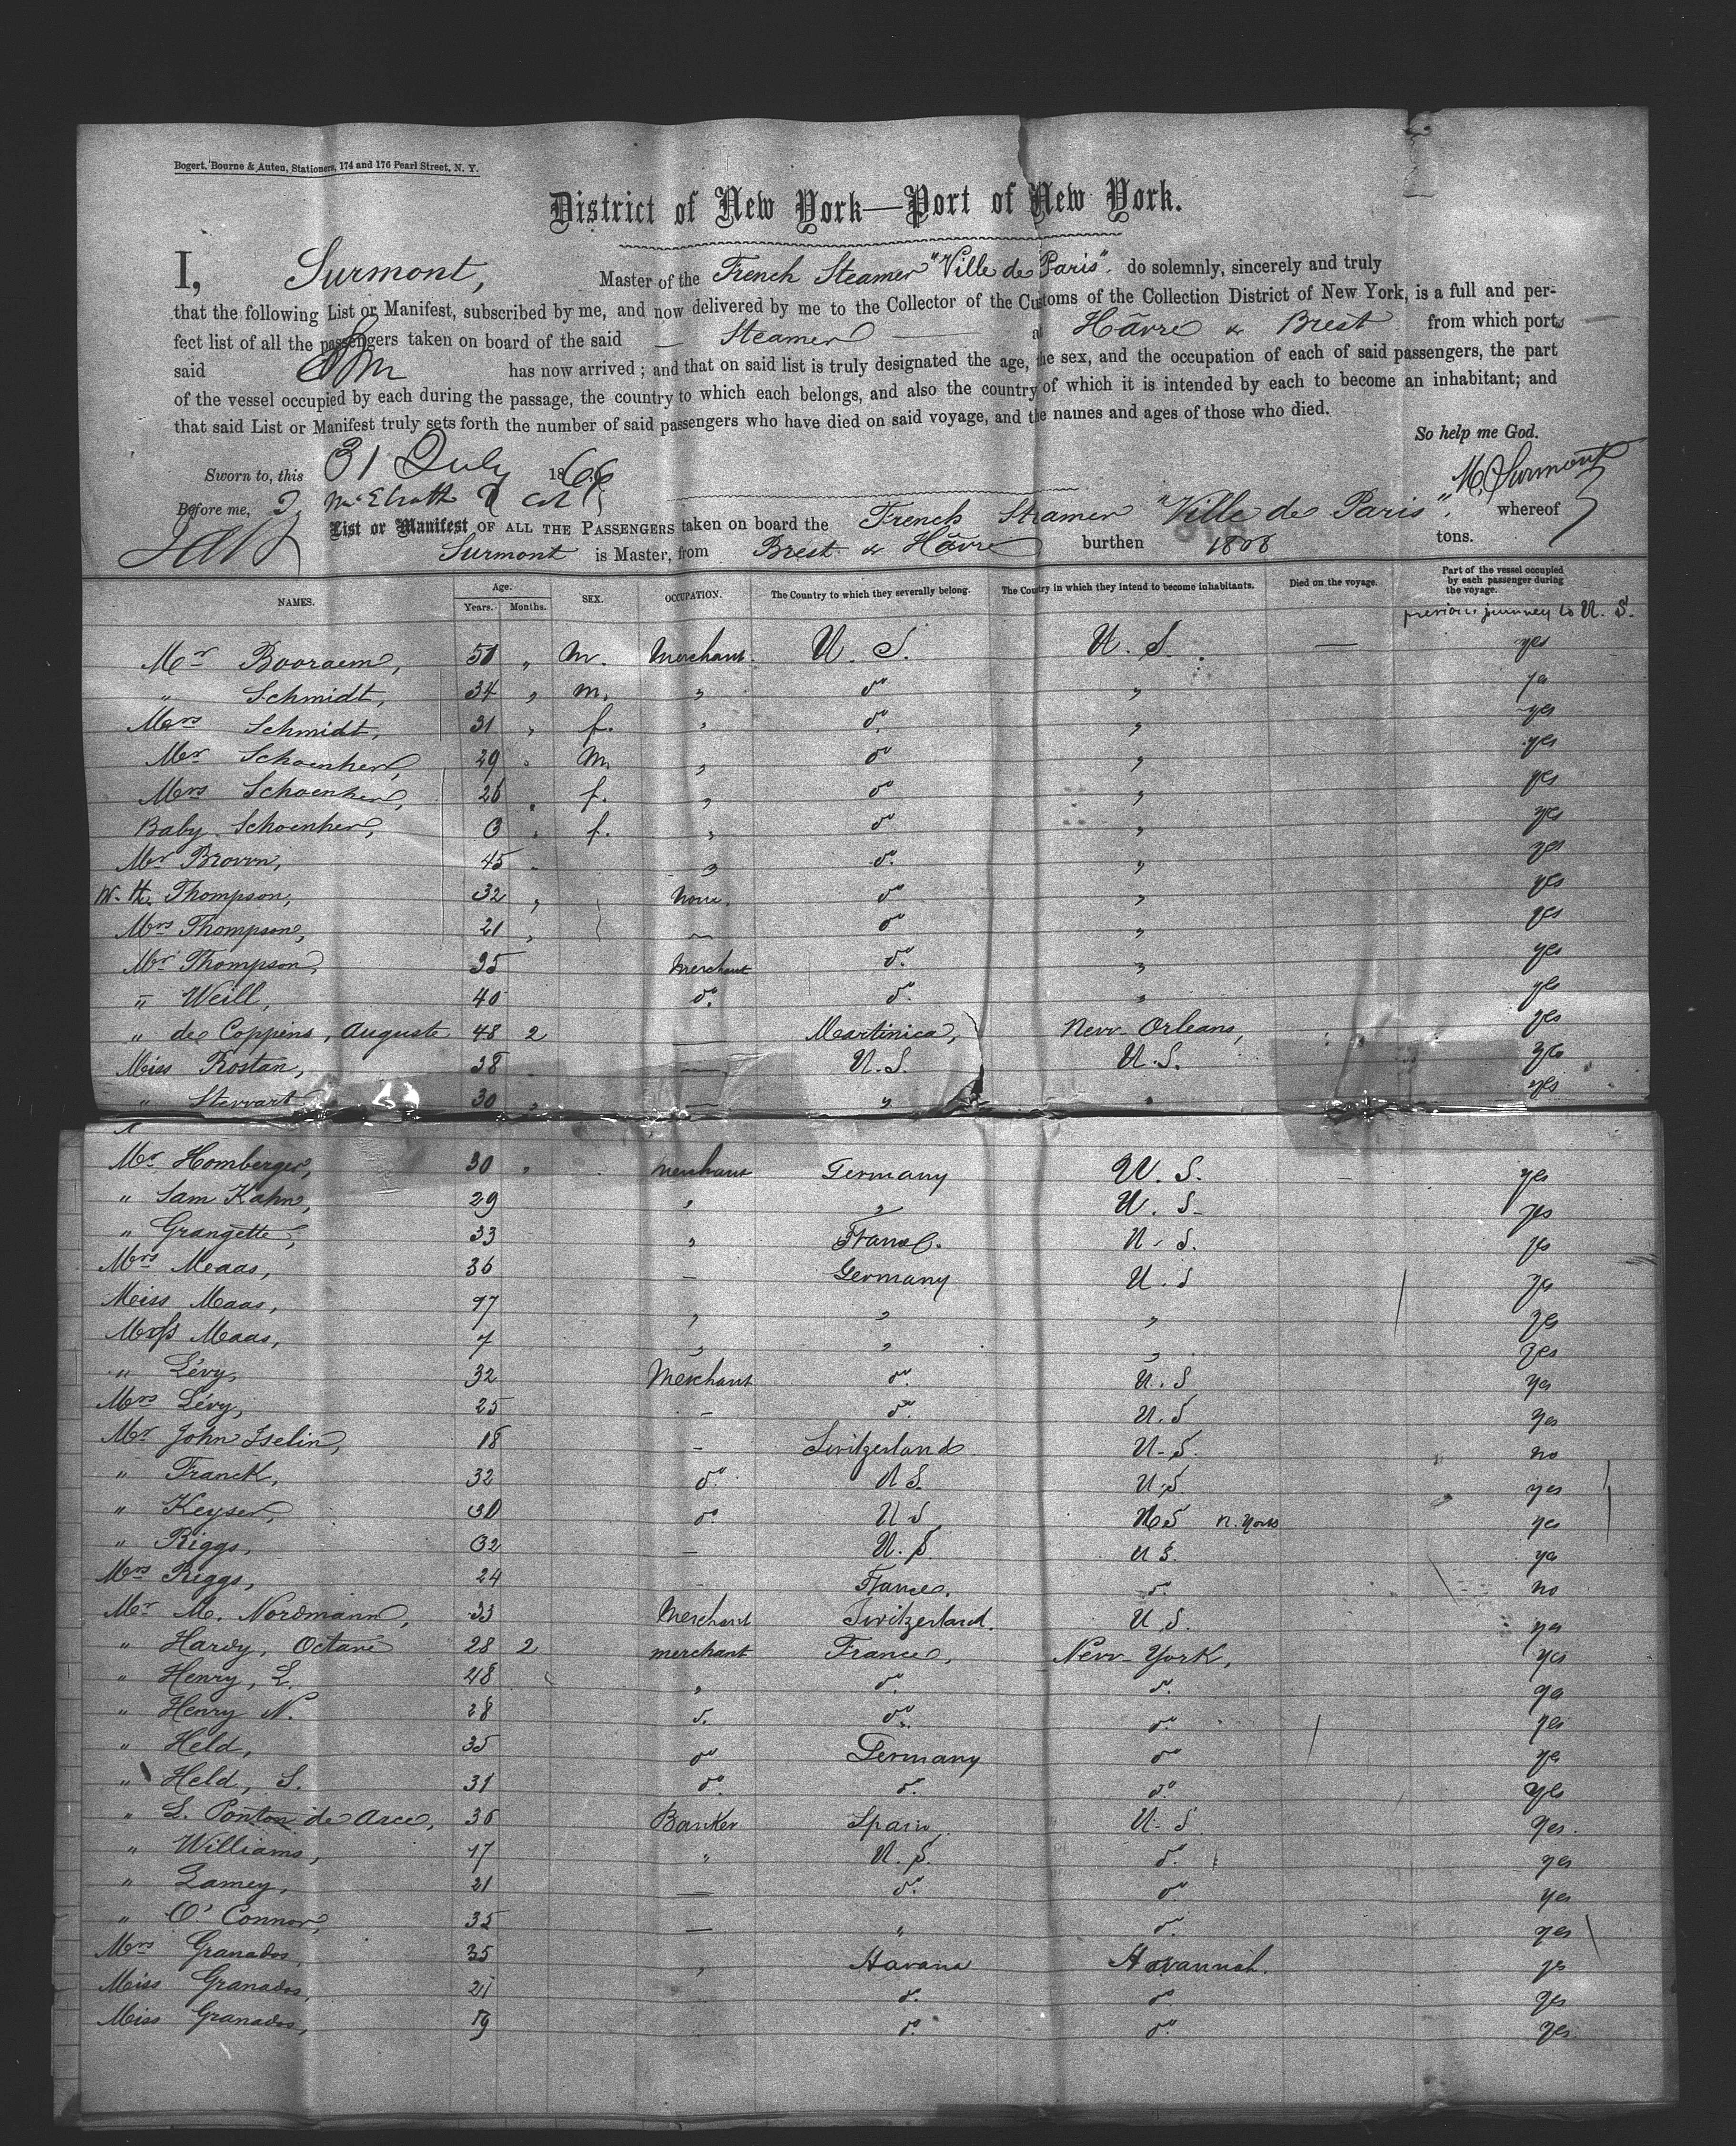 Bogert, Bourne & Auten, Stationers, 174 and 176 Pearl Street, N. Y.
District of New York—Port of New York.
I, Surmont, Master of the French Steamer "Ville de Paris". do solemnly, sincerely and truly
that the following List or Manifest, subscribed by me, and now delivered by me to the Collector of the Customs of the Collection District of New York, is a full and per-
fect list of all the passengers taken on board of the said — Steamer — at Hâvre & Brest from which ports
said has now arrived; and that on said list is truly designated the age, the sex, and the occupation of each of said passengers, the part
of the vessel occupied by each during the passage, the country to which each belongs, and also the country of which it is intended by each to become an inhabitant; and
that said List or Manifest truly sets forth the number of said passengers who have died on said voyage, and the names and ages of those who died.
So help me God.
Sworn to, this 31 July 1866 M. Surmont
Before me,
List or Manifest OF ALL THE PASSENGERS taken on board the French Steamer "Ville de Paris", whereof
Surmont is Master, from Brest & Hâvre burthen 1808 tons.
NAMES. Age. Years. Months. SEX. OCCUPATION. The Country to which they severally belong. The Country in which they intend to become inhabitants. Died on the voyage. Part of the vessel occupied by each passenger during the voyage.
previous journey to U. S.
Mr Booraem, 51 " m. Merchant. U. S. U. S. — yes
" Schmidt, 34 " m. " do " ya
Mrs Schmidt, 31 " f. " do " yes
Mr Schoenherr, 29 " m " do " yes
Mrs Schoenherr, 26 " f. " do " yes
Baby Schoenherr, 3 " f. " do " yes
Mr Brown, 45 " do. " yes
W. H. Thompson, 32 " None. do " yes
Mrs Thompson, 21 " — do " yes
Mr Thompson, 35 Merchant do. " yes
" Weill, 40 do. do. " yes
" de Coppens, Auguste 48 2 — Martinica, New Orleans, yes
Miss Rostan, 38 — U. S. U. S. yes
" Stewart 30 " — " " yes
Mr Homberger, 30 " merchant Germany U. S. yes
" Sam Kahn, 29 " " U. S. yes
" Grangette, 33 " France. U. S. yes
Mrs Maas, 36 — Germany U. S yes
Miss Maas, 97 " " " yes
Maas, 7 " " " yes
" Lévy, 32 Merchant do. U. S. yes
Mrs Lévy, 25 — do. U. S yes
Mr John Iselin, 18 — Switzerland U. S. no
" Franck, 32 do. U S. U. S yes
" Keyser, 30 do. U S U S N. York yes
" Riggs, 32 — U. S. U S. ya
Mrs Riggs, 24 — France. do. no
Mr M. Nordmann, 33 Merchant Switzerland. U. S. yes
" Hardy, Octave 28 2 merchant France, New York, yes
" Henry, L. 48 " do. do. ya
" Henry N. 28 do. do. do. yes
" Held, 35 do Germany do yes
" Held, S. 31 do. do. do. yes
" L. Ponton de Arce, 36 Banker Spain U. S yes.
" Williams, 47 " U. S. do. yes
" Lamey, 21 — do. do. yes
" O'Connor, 35 — " do. yes
Mrs Granados, 35 " Havana Havannah. yes
Miss Granados, 21 do. do. yes
Miss Granados, 19 do. do. yes